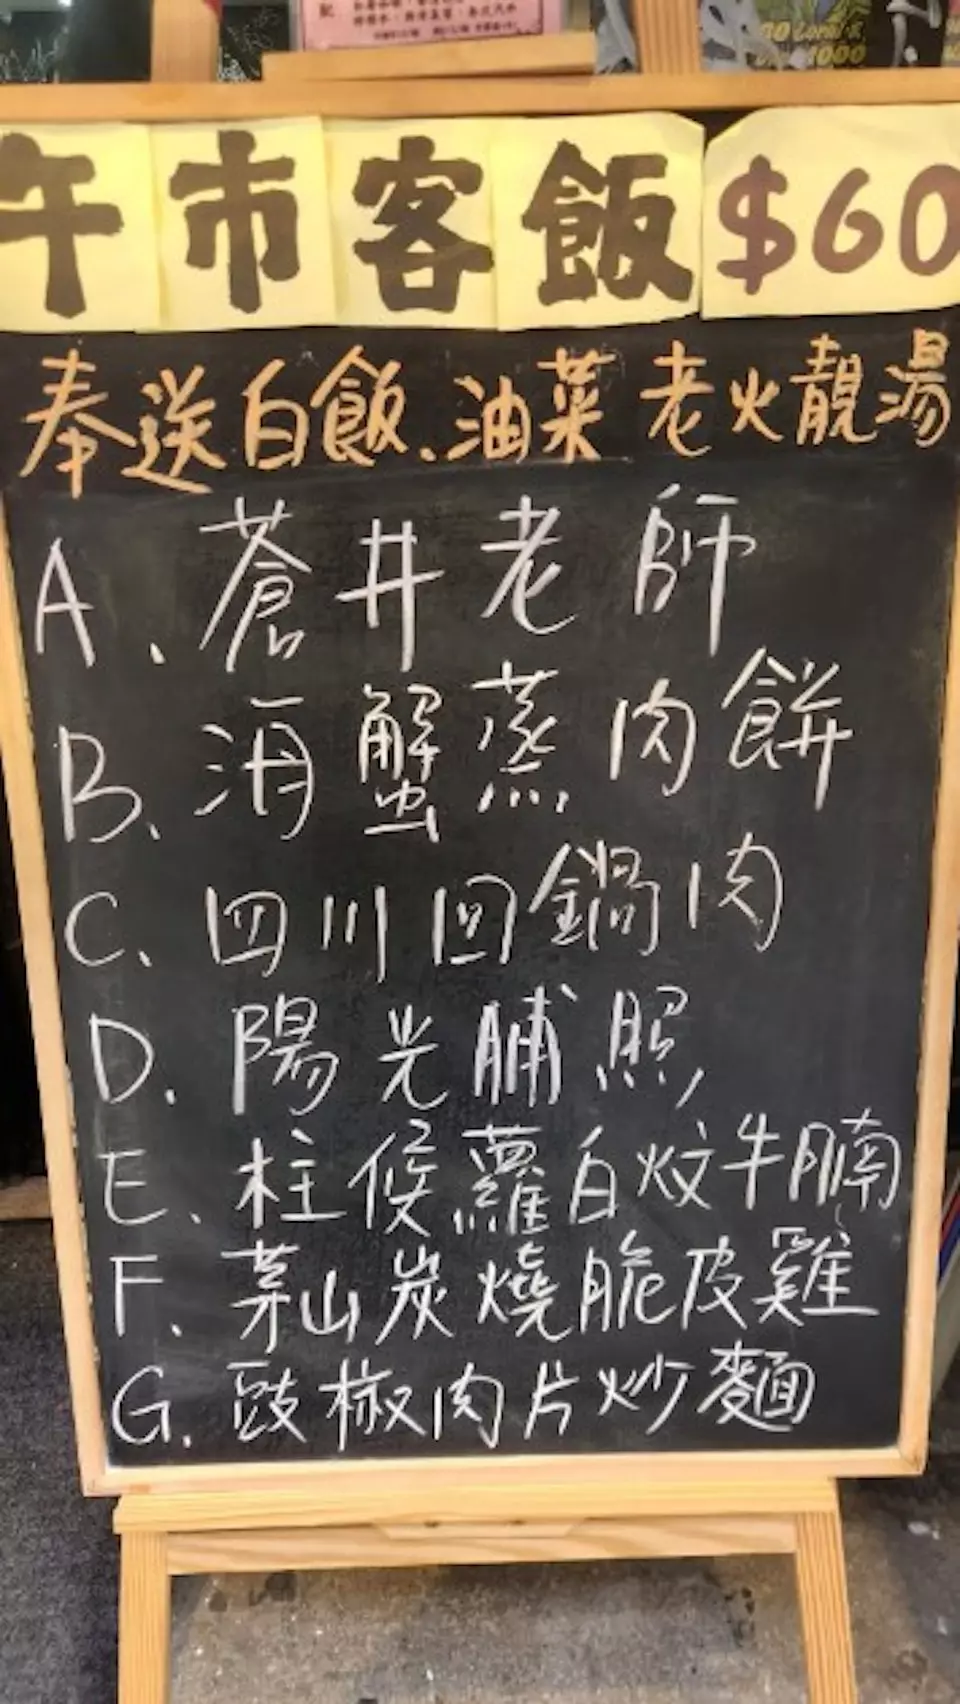 午市客飯$60
奉送白飯.油菜 老火靚湯
A.蒼井老師
B.海蟹蒸肉餅
C.四川回鍋肉
D.陽光脯照
E.柱侯蘿白炆牛腩
F.茅山炭燒脆皮雞
G.豉椒肉片炒麵